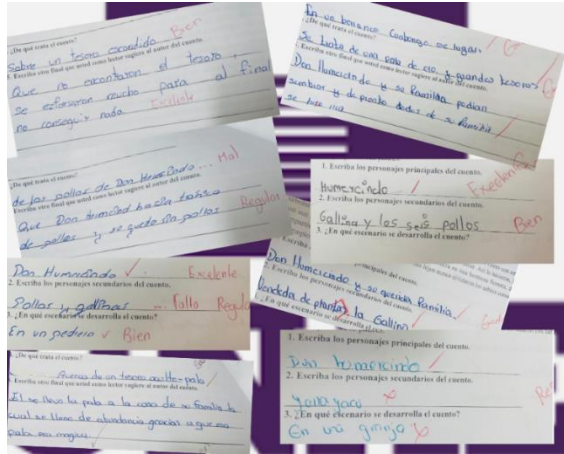 ¿De qué trata el cuento?
Sobre un tesoro escondido. Bien
Escriba otro final que usted como lector sugiere al autor del cuento.
Que no encontraron el tesoro,
se esforzaron mucho para al final
no conseguir nada Exelente
¿De qué trata el cuento?
Se trata de una pata de oro, y grandes tesoros
Escriba otro final que usted como lector sugiere al autor del cuento.
Don Humercindo y su Ramilda pedian
sembrar y de pronto
se hizo rica
¿De qué trata el cuento?
de los pollos de Don Humercindo ... Mal
Escriba otro final que usted como lector sugiere al autor del cuento.
Que Don Humcind hacia trabico Regular
de pollos y se quedo sin pollos
1. Escriba los personajes principales del cuento.
Humercindo Exelente
2. Escriba los personajes secundarios del cuento.
Gallina y los seis pollos Bien
3. ¿En qué escenario se desarrolla el cuento?
Don Humrsindo Exelente
2. Escriba los personajes secundarios del cuento.
Pollos y gallinas ... falta Regular
3. ¿En qué escenario se desarrolla el cuento?
En un pedrero Bien
principales del cuento.
Don Homercindo y su querida Ramilia.
2. Escriba los personajes secundarios del cuento.
Vendeda de plantas, la Gallina
¿En qué escenario se desarrolla el
¿De qué trata el cuento?
Acerca de un tesoro oculto-pata
Escriba otro final que usted como lector sugiere al autor del cuento.
El se llevo la pata a la casa de su familia la
cual se lleno de abundancia gracias a que esa
pata era magica.
1. Escriba los personajes principales del cuento.
Don humercindo
2. Escriba los personajes secundarios del cuento.
yanayaco
3. ¿En qué escenario se desarrolla el cuento?
En una granja